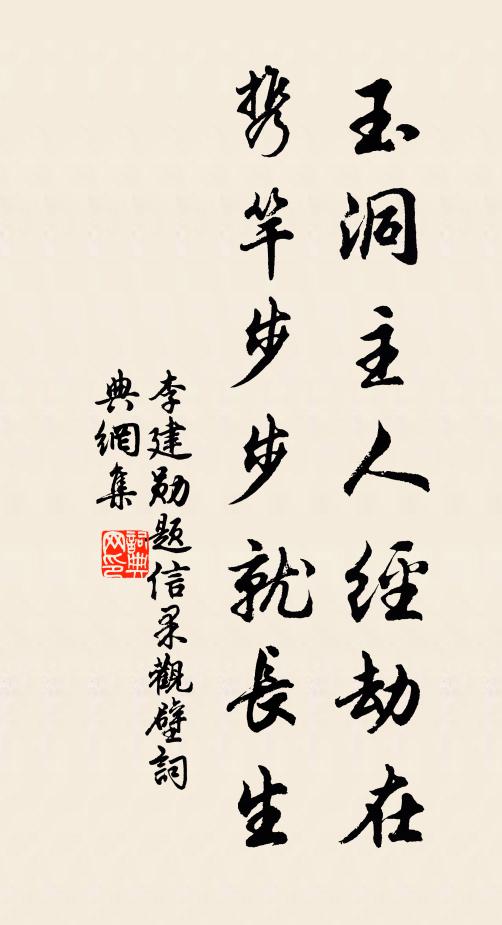 玉洞主人經劫在
携竿步步就長生
李建勋題信果觀壁詞
典網集
詞典網印